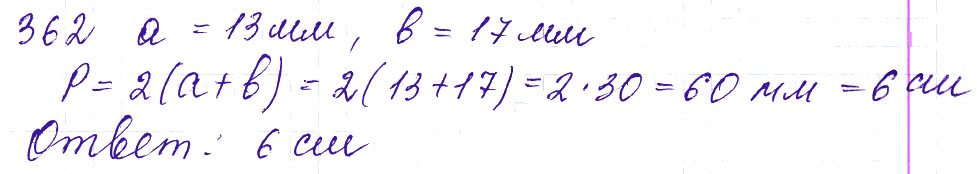 362 a = 13 мм, в = 17 мм
P = 2(a + в) = 2(13+17) = 2·30 = 60 мм = 6 см
Ответ: 6 см